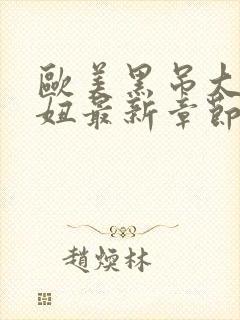 歐美黑吊大
妞最新章節
趙煐林